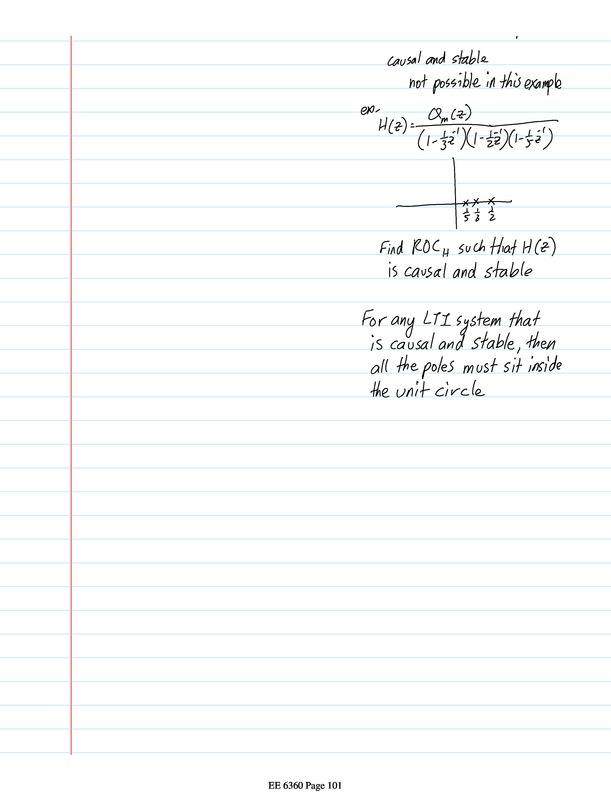 causal and stable
not possible in this example
ex.
H(z) = Qm(z) / (1 - 1/3 z^-1)(1 - 1/2 z^-1)(1 - 1/5 z^-1)
1/5 1/3 1/2
Find ROC_H such that H(z)
is causal and stable
For any LTI system that
is causal and stable, then
all the poles must sit inside
the unit circle
EE 6360 Page 101